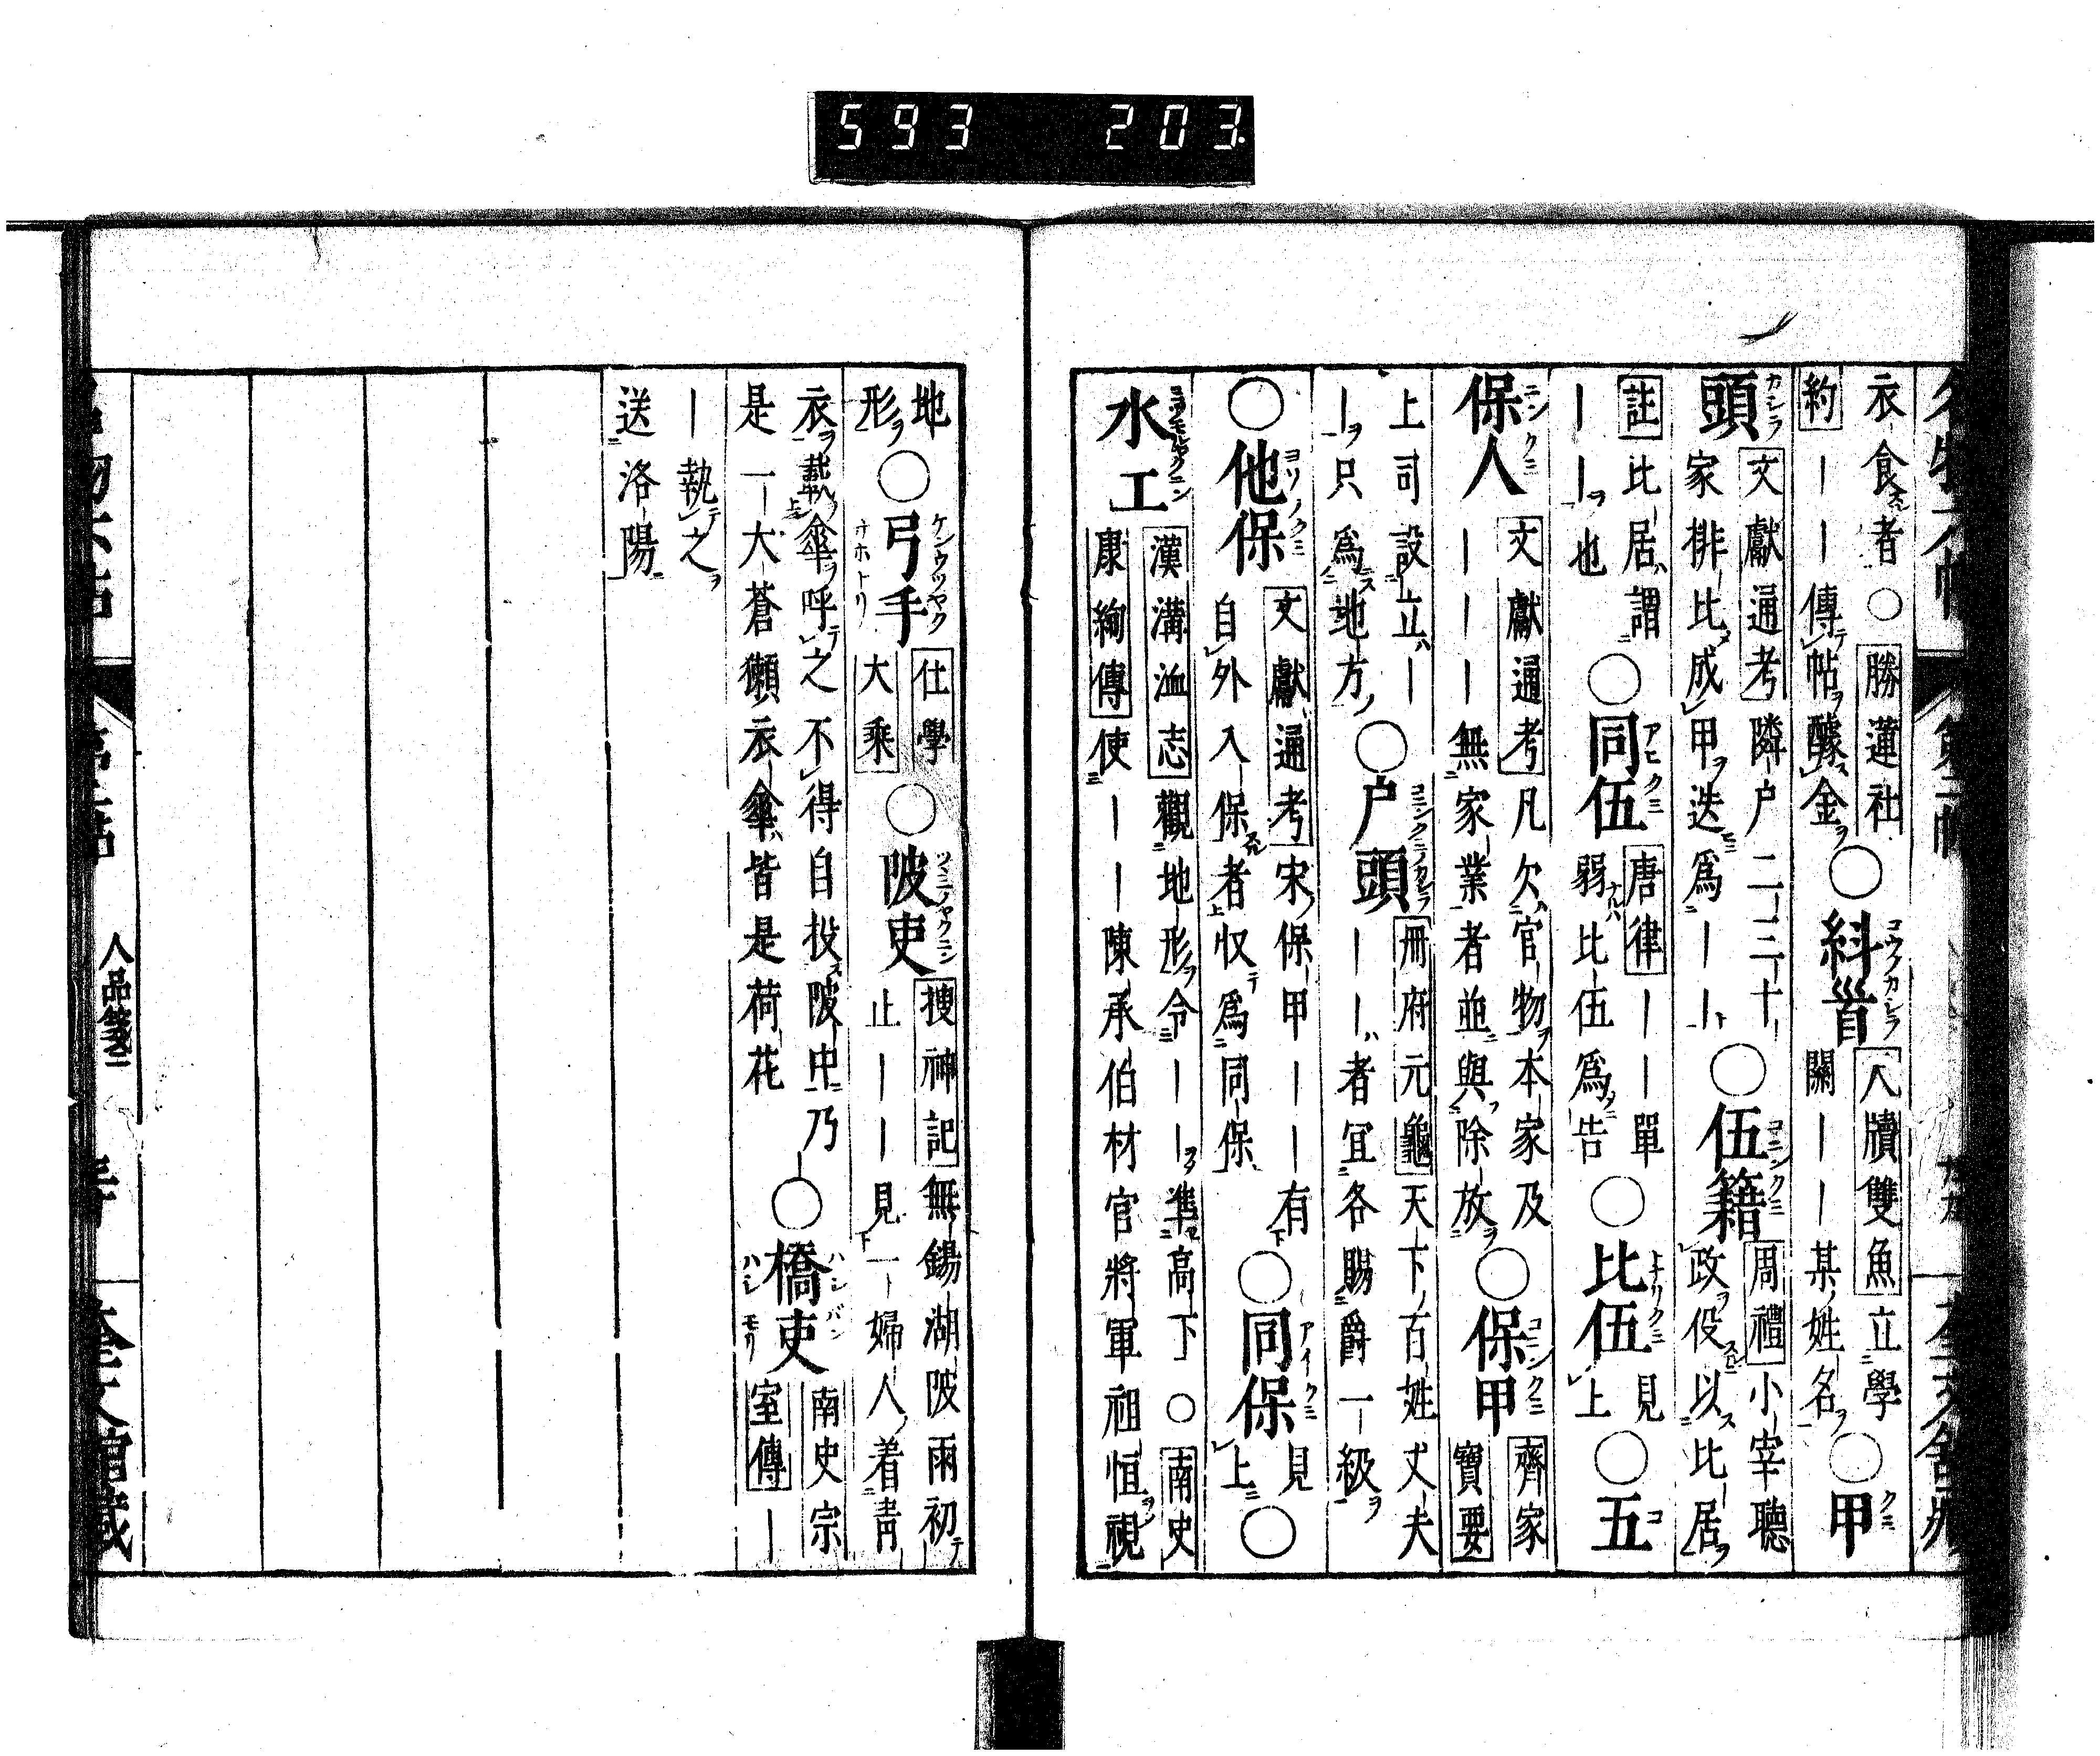 593 203
衣食者○勝蓮社
約――傳帖醵金○糾首人牘雙魚立學
關――某姓名○甲
頭文獻通考隣戶二三十
家排比成甲迭爲――○伍籍周禮小宰聽
政役以比居
註比居謂
――也○同伍唐律――單
弱比伍爲告○比伍見
上○五
保人文獻通考凡欠官物本家及
――――無家業者並與除放○保甲齊家
寶要
上司設立―
―只爲地方○戶頭冊府元龜天下百姓丈夫
――者宜各賜爵一級
○他保文獻通考宋保甲――有
自外入保者収爲同保○同保見
上○
水工漢溝洫志觀地形令――準高下○南史
康絢傳使――陳承伯材官將軍祖恒視
地
形○弓手仕學
大乘○陂吏搜神記無錫湖陂雨初
止――見一婦人着青
衣戴傘呼之不得自投陂中乃
是一大蒼獺衣傘皆是荷花○橋吏南史宗
室傳―
―執之
送洛陽
人品箋二